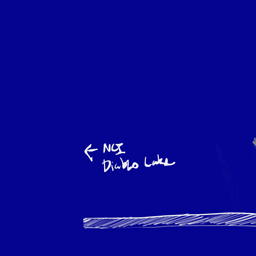 ← NCI
Diablo Lake